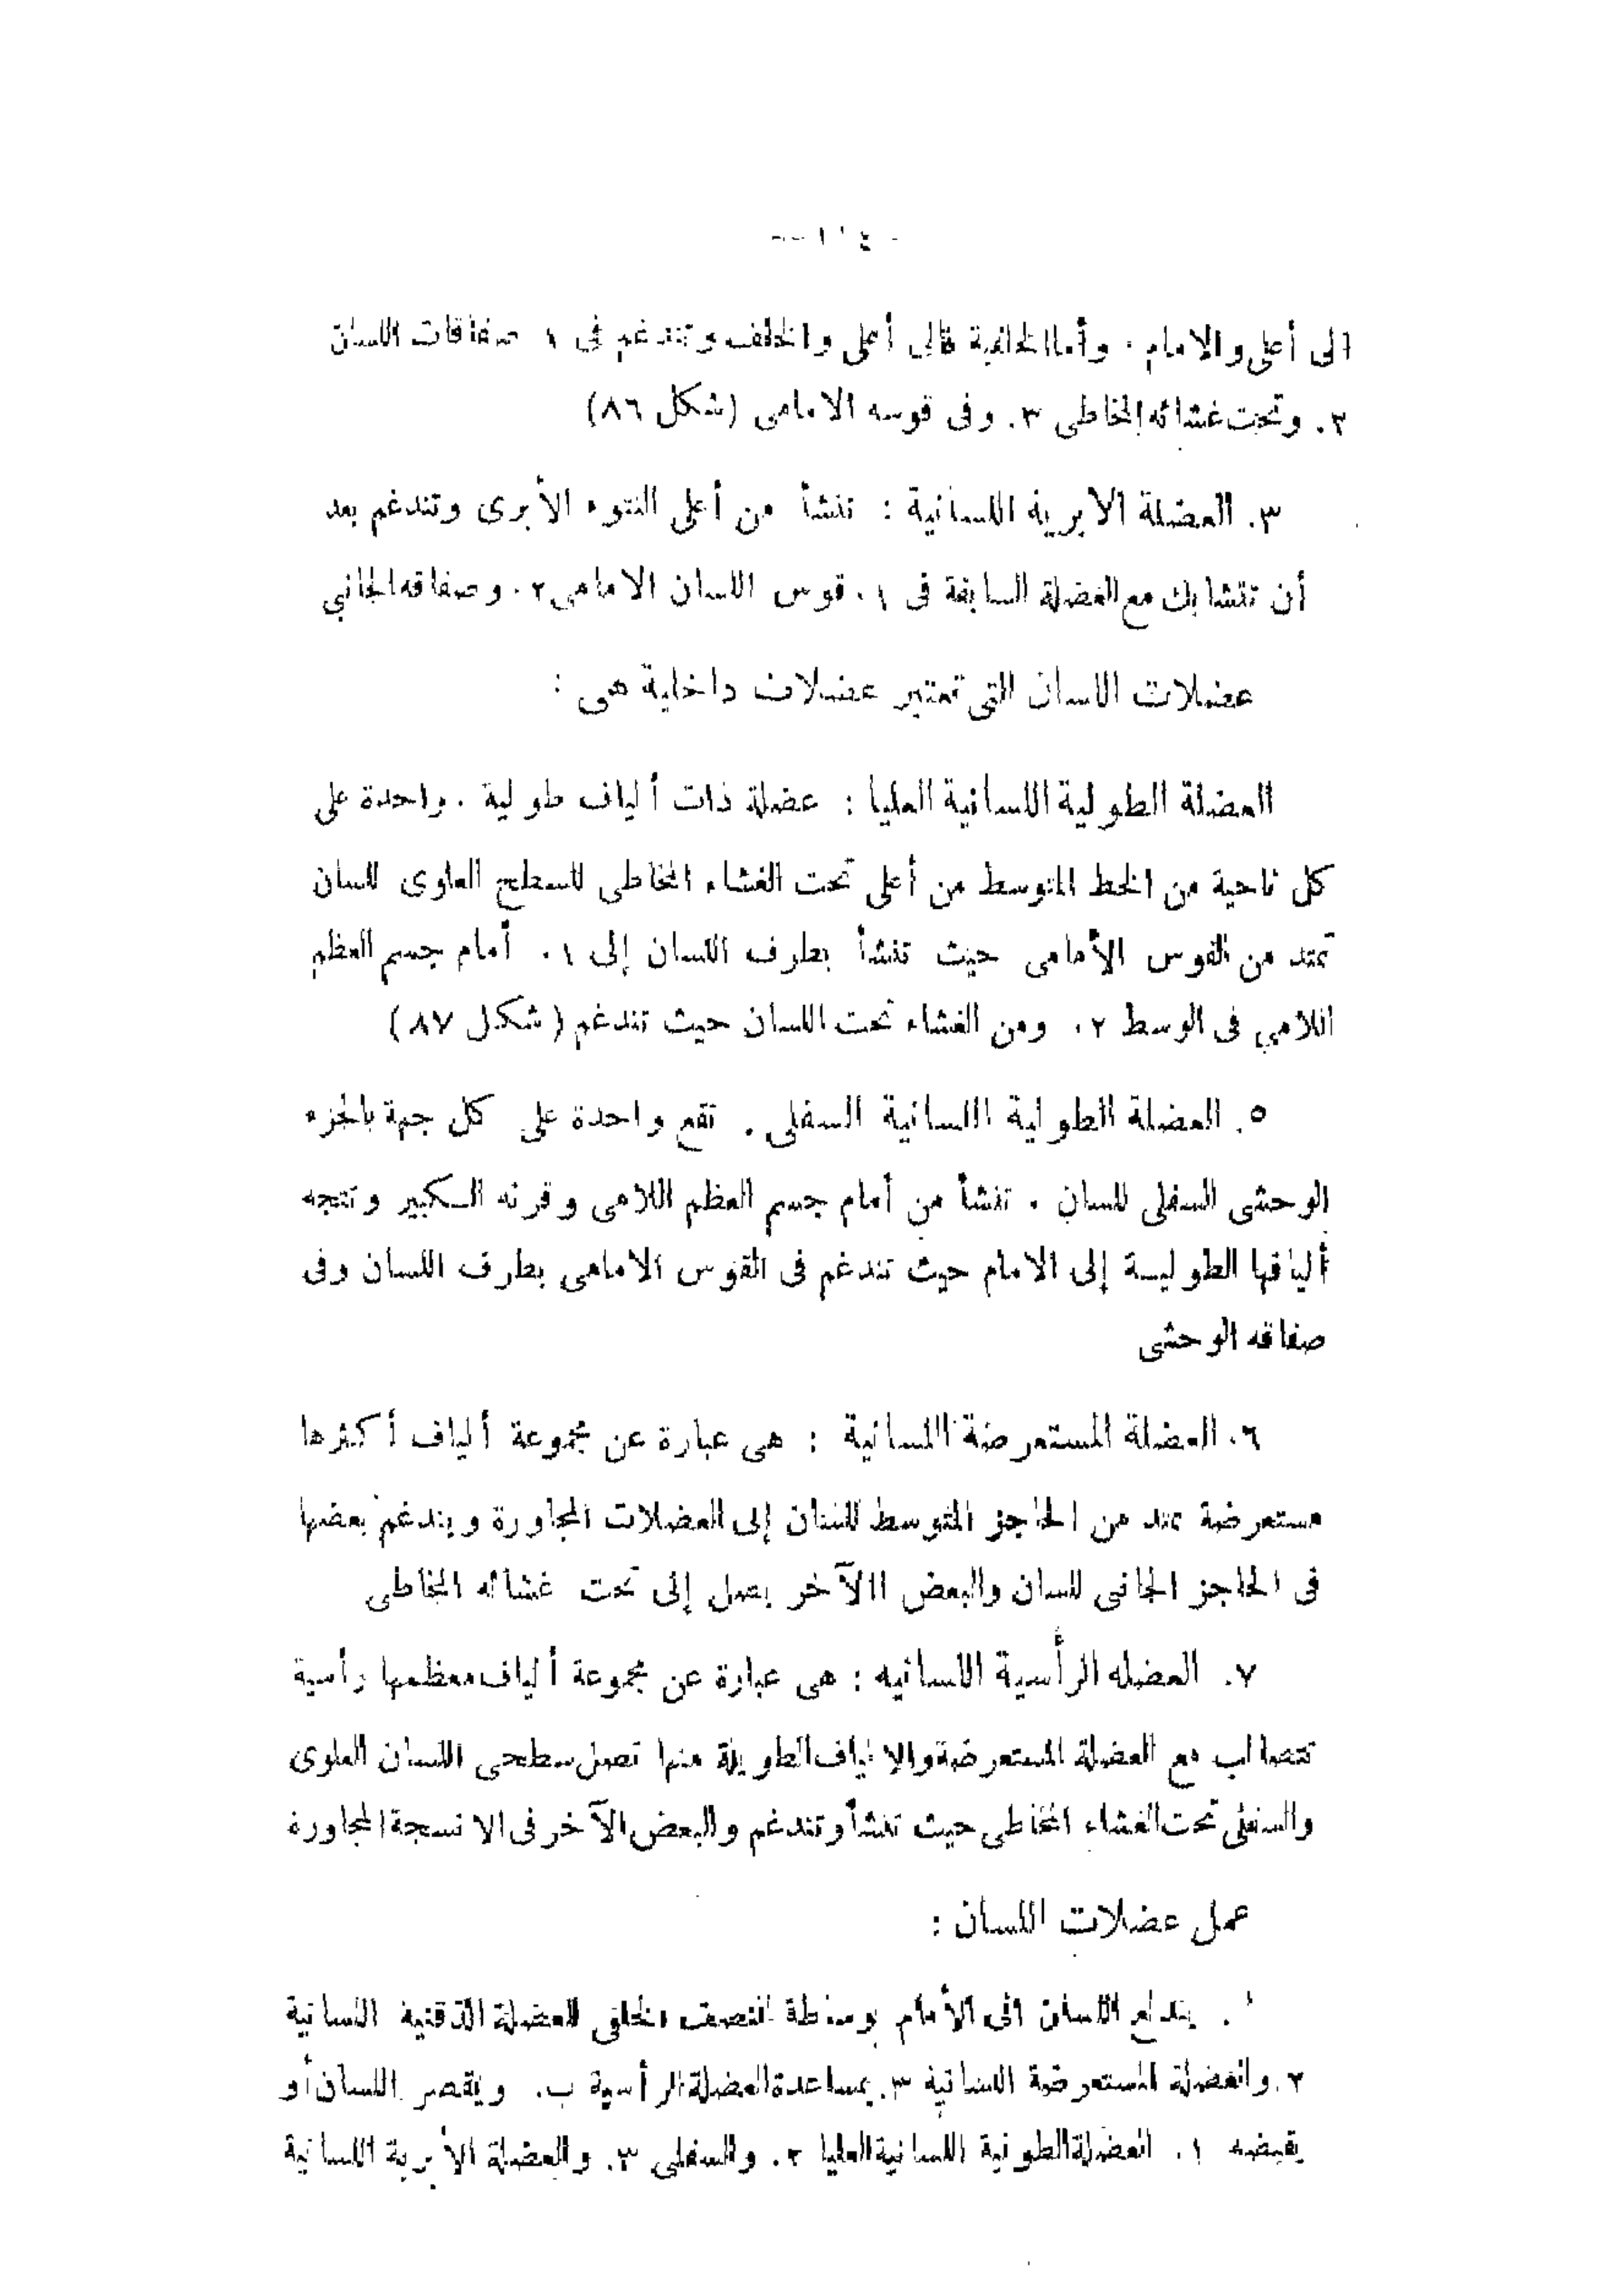 الى أعلى والامام. وأما الخلفية فالى أعلى والخلف وتندغم فى ١ صفاقات اللسان
٢. وتحت غشائه المخاطى ٣. وفى قوسه الامامى (شكل ٨٦)
٣. العضلة الابرية اللسانية : تنشأ من أعلى النتوء الأبرى وتندغم بعد
أن تتشابك مع العضلة السابقة فى ١. قوس اللسان الامامى ٢. وصفاقه الجانبي
عضلات اللسان التى تعتبر عضلات داخلية هى :
العضلة الطولية اللسانية العليا : عضلة ذات ألياف طولية . واحدة على
كل ناحية من الخط المتوسط من أعلى تحت الغشاء المخاطى للسطح العلوى للسان
تمتد من القوس الأمامى حيث تنشأ بطرف اللسان إلى ١. أمام جسم العظم
اللامي فى الوسط ٢. ومن الغشاء تحت اللسان حيث تندغم (شكل ٨٧)
٥. العضلة الطولية اللسانية السفلى . تقع واحدة على كل جهة بالجزء
الوحشى السفلى للسان . تنشأ من أمام جسم العظم اللامى وقرنه الكبير وتتجه
أليافها الطولية إلى الامام حيث تندغم فى القوس الامامى بطرف اللسان وفى
صفاقه الوحشى
٦. العضلة المستعرضة اللسانية : هى عبارة عن مجموعة ألياف أكثرها
مستعرضة تمتد من الحاجز المتوسط للسان إلى العضلات المجاورة ويندغم بعضها
فى الحاجز الجانبى للسان والبعض الآخر يصل إلى تحت غشائه المخاطى
٧. العضله الرأسية اللسانيه : هى عبارة عن مجموعة ألياف معظمها رأسية
تتصالب مع العضلة المستعرضة والالياف الطويلة منها تصل سطحى اللسان العلوى
والسفلى تحت الغشاء المخاطى حيث تنشأ وتندغم والبعض الآخر فى الانسجة المجاورة
عمل عضلات اللسان :
. يندلع اللسان الى الأمام بوساطة النصف الخلفى للعضلة الذقنية اللسانية
٢. والعضلة المستعرضة اللسانية ٣. بمساعدة العضلة الرأسية ب. ويقصر اللسان أو
يقبضه ١. العضلة الطولية اللسانية العليا ٢. والسفلى ٣. والعضلة الأبرية اللسانية